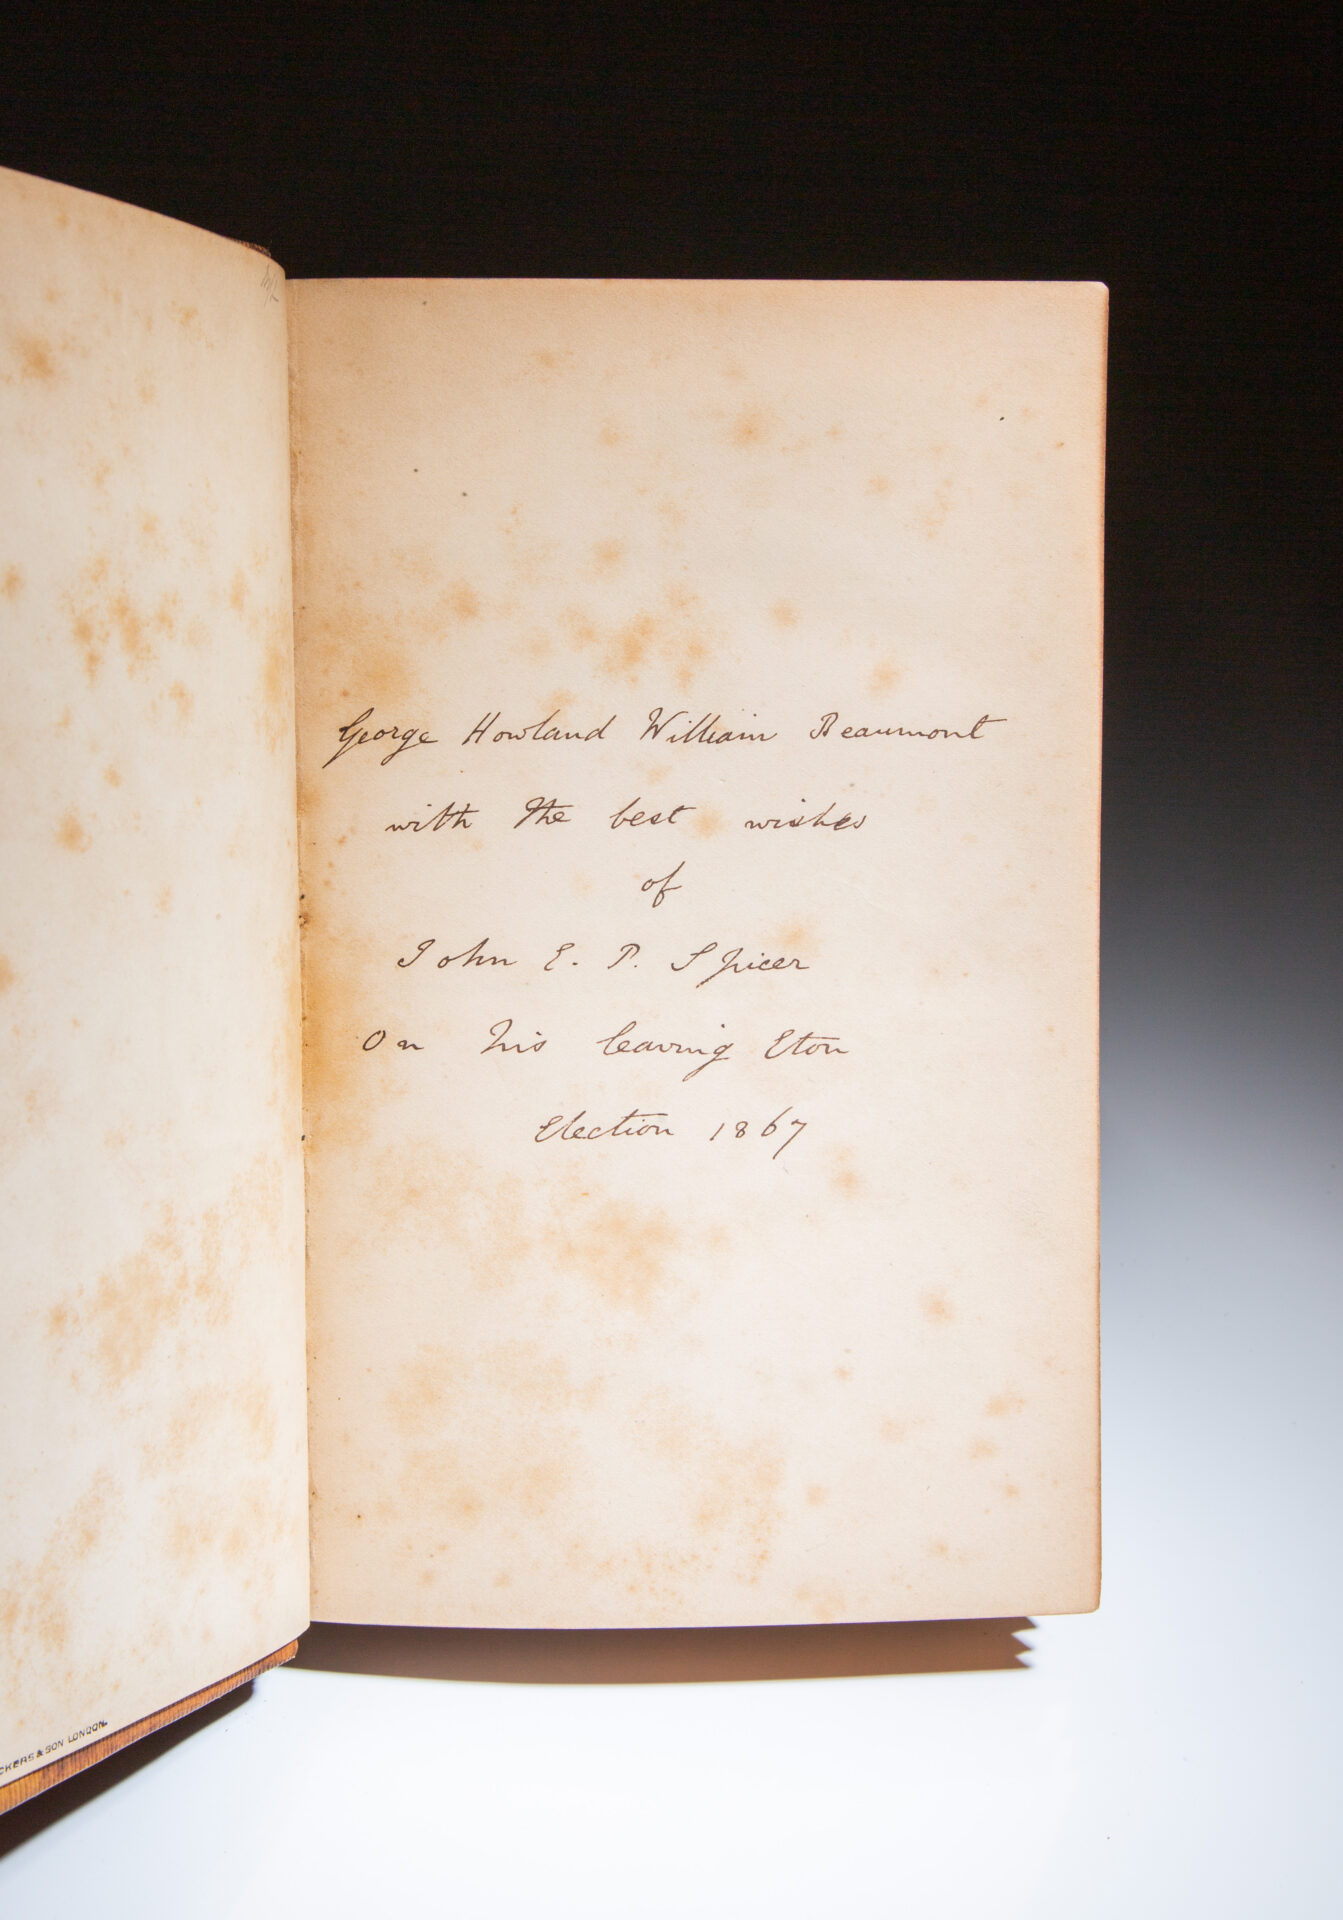 George Howland William Beaumont
with the best wishes
of
John E. P. Spicer
On his leaving Eton
Election 1867
CKERS & SON LONDON.